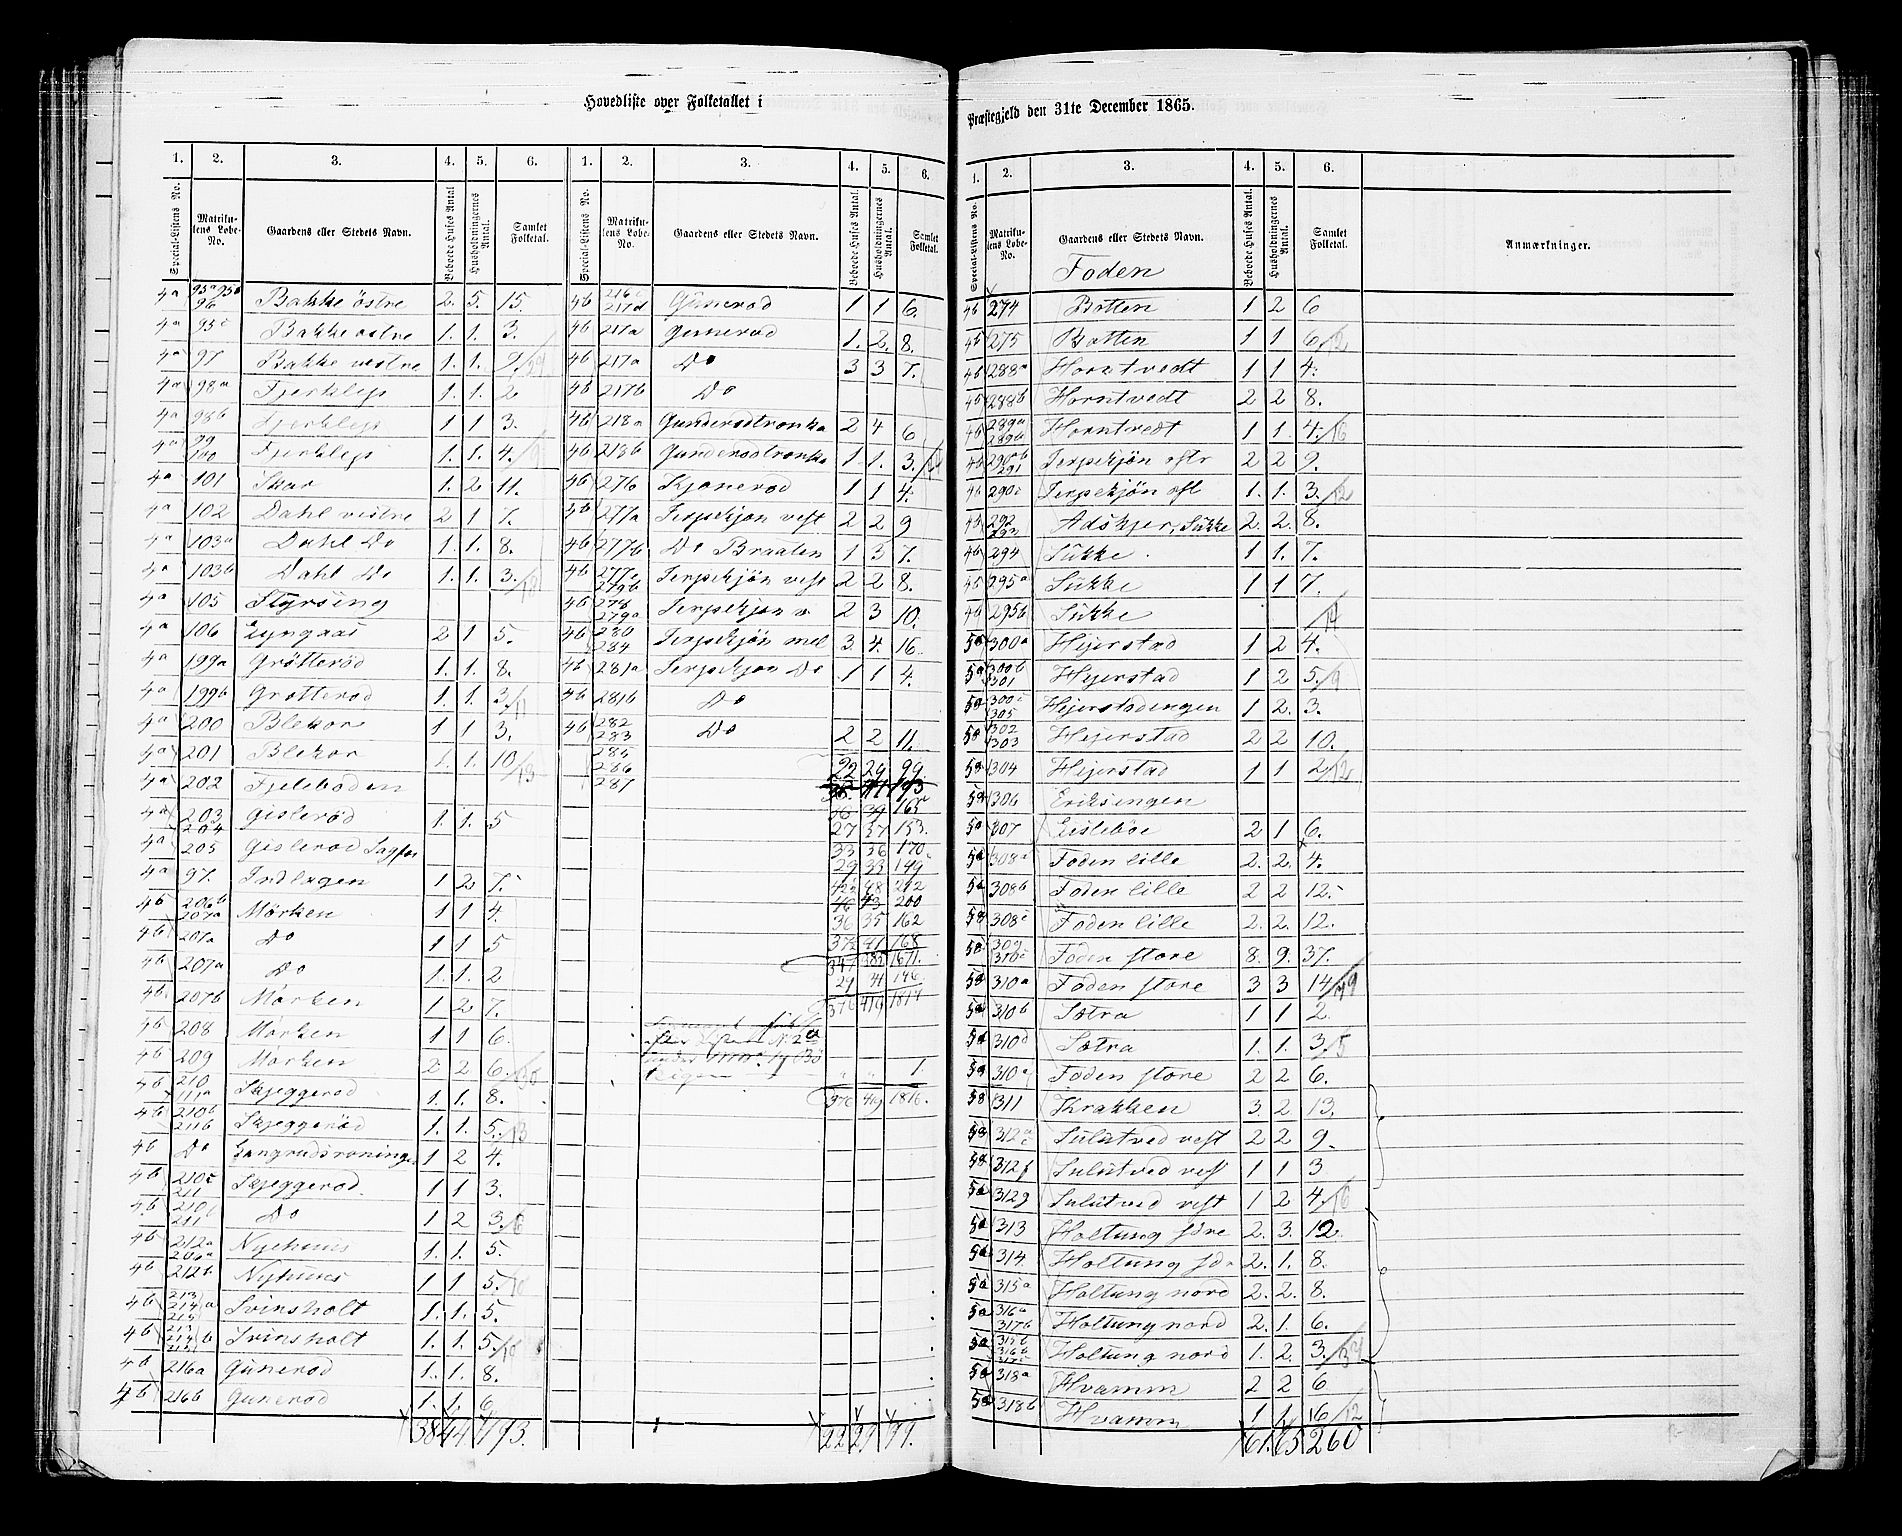 Hovedliste over Folketallet i
Præstegjeld den 31te December 1865.
1. 2. 3. 4. 5. 6. 1. 2. 3. 4. 5. 6.
Special-Listens No. Matrikulens Løbe-No. Gaardens eller Stedets Navn. Beboede Huses Antal. Husholdningernes Antal. Samlet Folketal.
4a 95a 95b 96 Bakke östre 2. 5. 15.
4a 95c Bakke östre 1. 1. 3.
4a 97 Bakke vestre 1. 1.
4a 98a Fjerklep 1. 1. 2
4a 98b Fjerklep 1 1 3.
4a 99 100 Fjerklep 1. 1. 4.
4a 101 Skar 1. 2 11.
4a 102 Dahl vestre 2 1 7.
4a 103a Dahl Do 1. 1. 8.
4a 103b Dahl Do 1. 1. 3.
4a 105 Styrsing
4a 106 Lyngaas 2 1 5.
4a 199a Grötteröd 1. 1. 8.
4a 199b Grötteröd 1. 1. 3/11
4a 200 Blekar 1 1 3.
4a 201 Blekar 1. 1. 10/13
4a 202 Fjeleboden
4a 203 204 Gisleröd 1. 1. 5
4a 205 Gisleröd
4a 97. Indlagen 1 2 7.
4b 206b 207a Mörken 1 1 4.
4b 207a Do 1 1 5
4b 207a Do 1. 1. 2
4b. 207b Mörken 1 2 7.
4b 208 Mörken 1 1 6
4b 209 Mörken 2 2 6.
4b 210 Skjeggeröd 1. 1. 8.
4b 210b 211b Skjeggeröd 1. 1. 5./13
4b Do Langrudsroningen 1 2 4.
4b 210c 211 Skjeggeröd 1 1 3.
4b 210 211 Do 1 2 3.
4b 212a Nyehuus 1. 1. 5.
4b 212b Nyehuus 1 1 5./10
4b 213 214 a 215 Svinsholt 1. 1. 5.
4b 213 214 b 215 Svinsholt 1. 1. 5./10
4b 216a Gunerod 1. 1. 8.
4b 216b Gunerod 1. 1. 6
38 44 193.
Special-Listens No. Matrikulens Løbe-No. Gaardens eller Stedets Navn. Beboede Huses Antal. Husholdningernes Antal. Samlet Folketal.
4b 216c 217d Gunerod 1 1 6.
4b 217a Gunerod 1. 2. 8.
4b 217a Do 3 3 7.
4b 217b Do
4b 218a Gunderodtronka 2 4 6
4b 218b Gunderodtronka 1. 1. 3.
4b 276 Kjonerod 1 1 4.
4b 277a Terpekjon vest 2 2 9
4b 277b Do Braaten 1 3 7.
4b 277c 279b Terpekjön vest 2 2 8.
4b 278 279a Terpekjon v 2 3 10.
4b 280 284 Terpekjön mel 3. 4. 16.
4b 281a Terpekjon Do 1 1 4.
4b 281b Do
4b 282 283 Do 2 2 11.
285
286 22 29 99.
287
36 39 165
27 37 153.
33 36 170
29 33 149
48 212
46 43 200
36 35 162
37½ 41 168
347 385 1671.
29 41 146
376 419 1817
1.
376 419 1816.
22 29 99.
1. 2. 3. 4. 5. 6.
Special-Listens No. Matrikulens Løbe-No. Gaardens eller Stedets Navn. Beboede Huses Antal. Husholdningernes Antal. Samlet Folketal. Anmærkninger.
Foden
4b 274 Botten 1 2 6
4b 275 Botten 1 1 6/12
4b 288a Horntvedt 1 1 4.
4b 288b Horntvedt 2 2 8.
4b 289a 289b Horntvedt 1 1 4./16
4b 290b 291 Terpekjön östr 2 2 9.
4b 290c Terpekjön öst 1. 1. 3./12
4b 292 293 Adskjer, Sükke 2. 2. 8.
4b 294 Sükke 1 1. 7.
4b 295a Sükke 1 1 7.
4b 295b Sükke /14
5a 300a Hejerstad 1 2 4.
5a 300b 301 Hejerstad 1 2 5./9
5a 300c 305 Hejerstadengen 1 2. 3.
5a 302 303 Hejerstad 2 2 10.
5a 304 Hejerstad 1 1 2/12
5a 306 Eriksengen
5a 307 Eislebøe 2 1 6.
5a 308a Foden lille 2. 2. 4.
5a 308b Foden lille 2 2 12.
5a 308c Foden lille 2. 2. 12.
5a 309 310c Foden store 8. 9. 37.
5a 310a Foden store 3 3 14
5a 310b Sætra 1 1 2
5a 310d Sætra 1. 1. 3./5
5a 310a Foden store 2 2 6.
5a 311 Krakken 3. 2 13.
5a 312 Sulutved vest 2 2 9.
5a 312f Sulutved vest 1 1 3
5a 312g Sulutved vest 1 2 4./16
5a 313 Holtung sdre 2. 3. 12
5a 314 Holtung sdr 2. 1. 8.
5a 315a Holtung nord 2. 2. 8.
5a 316a 317b Holtung nord 2. 1. 6.
5a 315b 316b 317c Holtung nord 1. 2. 3.
5a 318a Hvamm 2 2 6
5a 318b Hvamm 1 1 6/12
61. 65 260